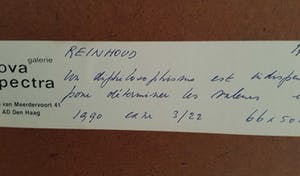 galerie
ova
pectra
van Meerdervoort 41
AD Den Haag
REINHOUD
Un est
pour déterminer les valeurs
1990 3/22 66 x 50